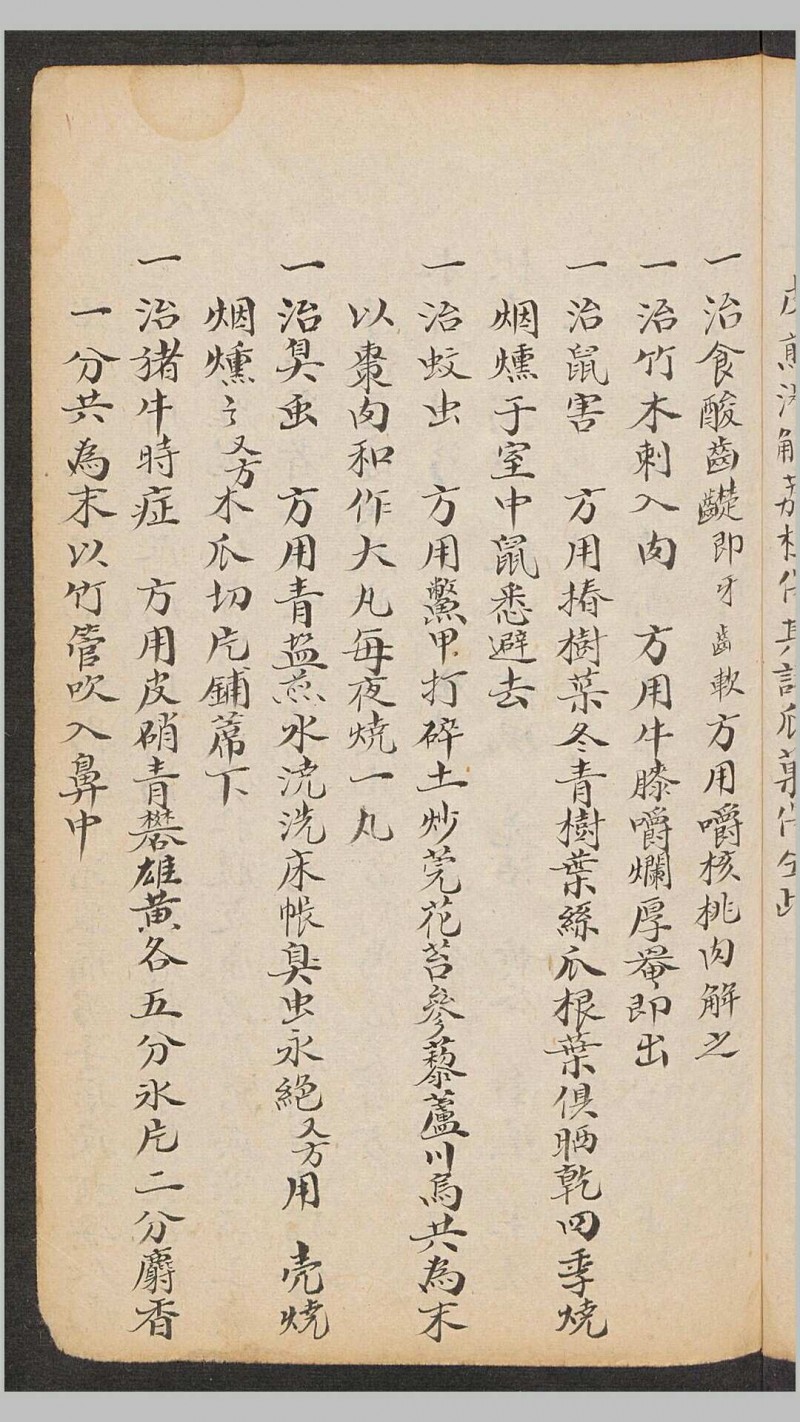 一治食酸齒齼即牙齒軟方用嚼核桃肉解之
一治竹木刺入肉 方用牛膝嚼爛厚罨即出
一治鼠害 方用椿樹葉冬青樹葉絲瓜根葉俱晒乾四季燒
烟燻于室中鼠悉避去
一治蚊虫 方用鱉甲打碎土炒莞花苦參藜蘆川烏共為末
以棗肉和作大丸每夜燒一丸
一治臭虫 方用青盐煎水澆洗床帳臭虫永絕又方用 壳燒
烟燻之又方木瓜切片鋪蓆下
一治猪牛時症 方用皮硝青礬雄黄各五分氷片二分麝香
一分共為末以竹管吹入鼻中